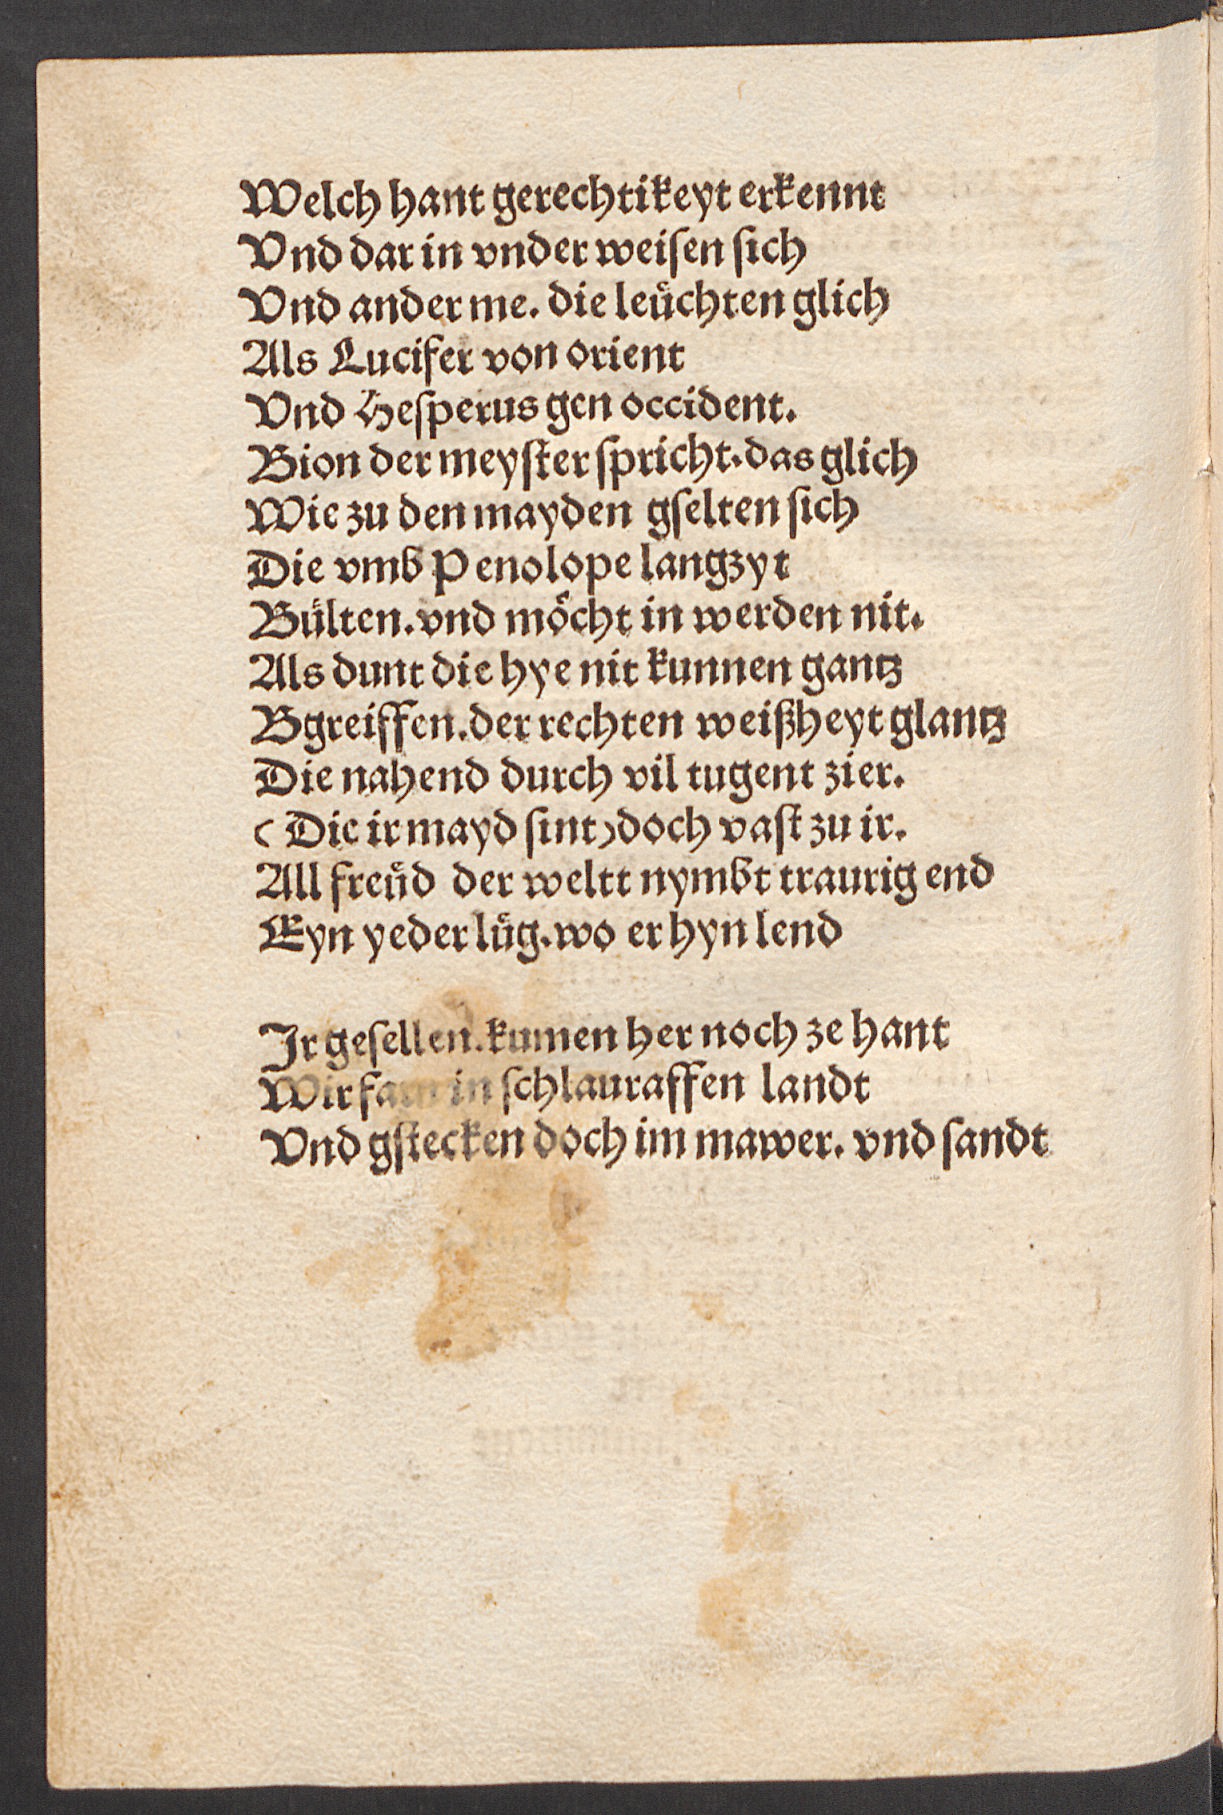 Welch hant gerechtikeyt erkennt
Vnd dar in vnder weisen sich
Vnd ander me. die leüchten glich
Als Lucifer von orient
Vnd Hesperus gen occident.
Bion der meyster spricht. das glich
Wie zu den mayden gselten sich
Die vmb Penolope langzyt
Bülten. vnd möcht in werden nit.
Als dunt die hye nit kunnen gantz
Bgreiffen. der rechten weißheyt glantz
Die nahend durch vil tugent zier.
(Die ir mayd sint) doch vast zu ir.
All freüd der weltt nymbt traurig end
Eyn yeder lüg. wo er hyn lend
Ir gesellen. kumen her noch ze hant
Wir farn in schlauraffen landt
Vnd gstecken doch im mawer. vnd sandt